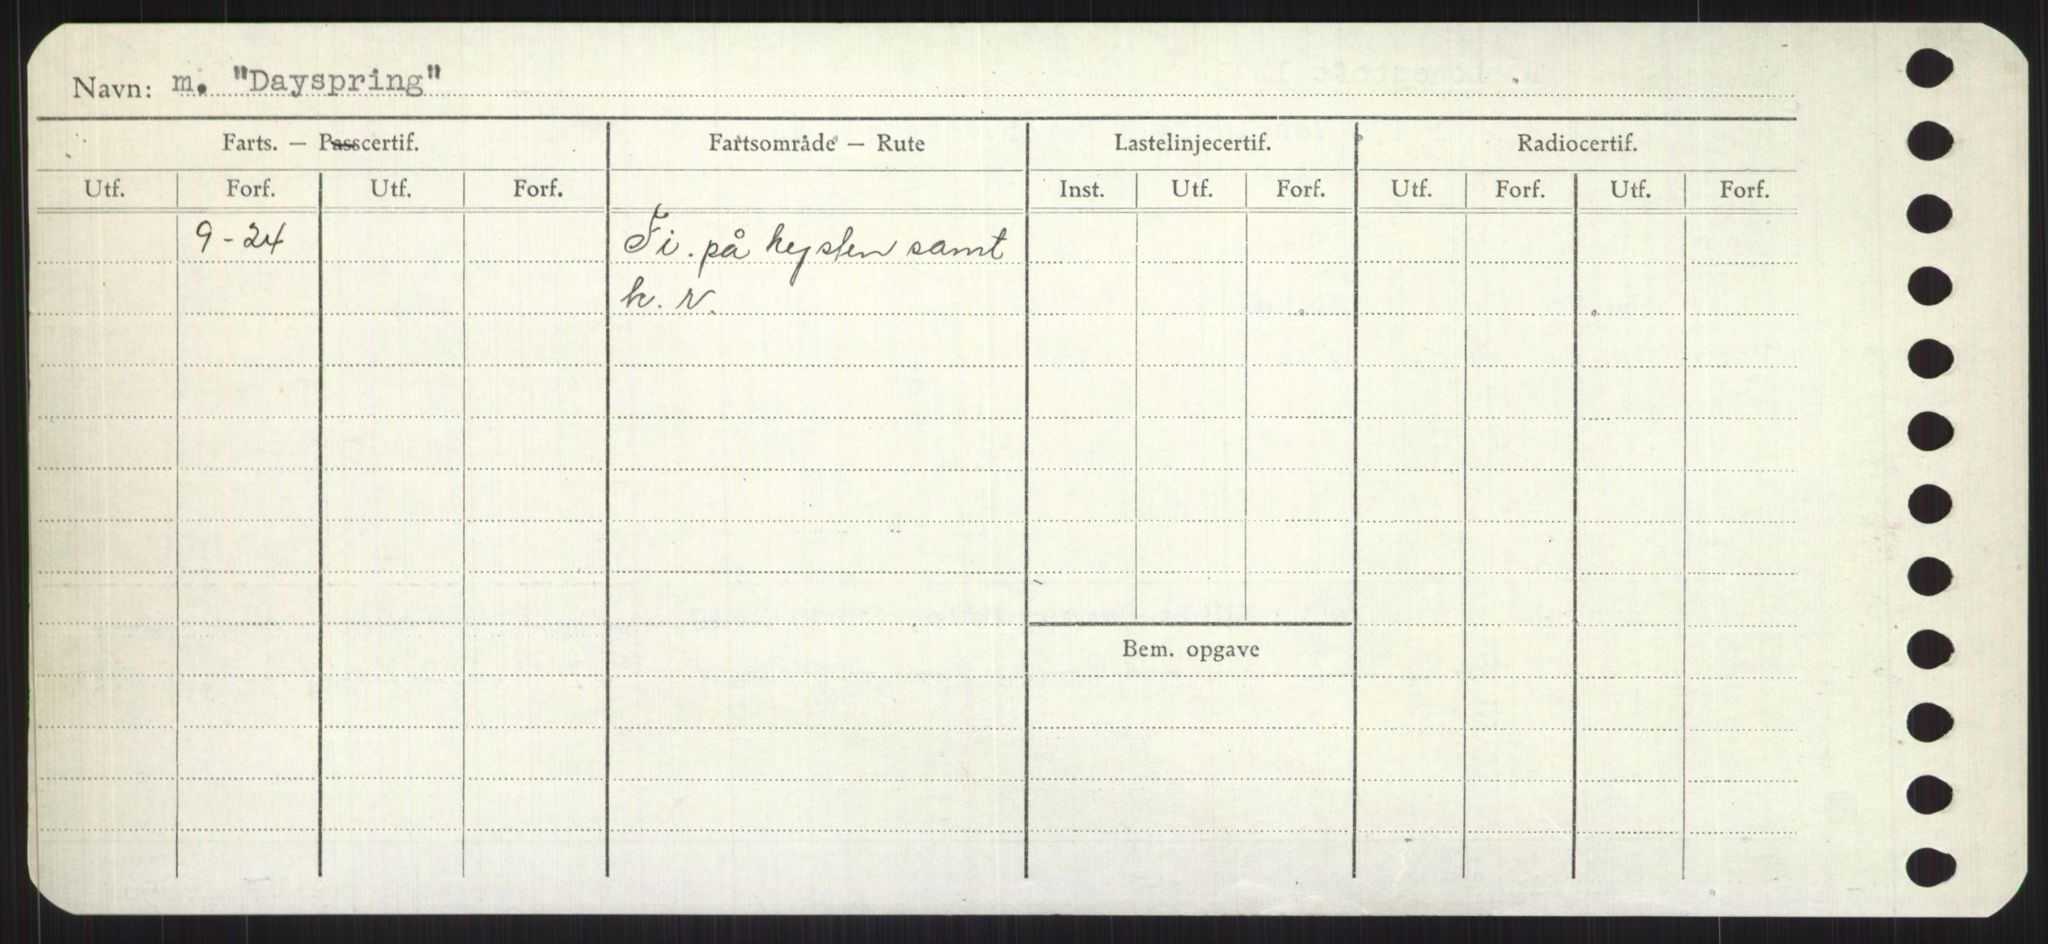 Navn: m. "Dayspring"
Farts. — Passcertif. Fartsområde — Rute Lastelinjecertif. Radiocertif.
Utf. Forf. Utf. Forf. Inst. Utf. Forf. Utf. Forf. Utf. Forf.
9-24 Fi. på kysten samt
h. r.
Bem. opgave